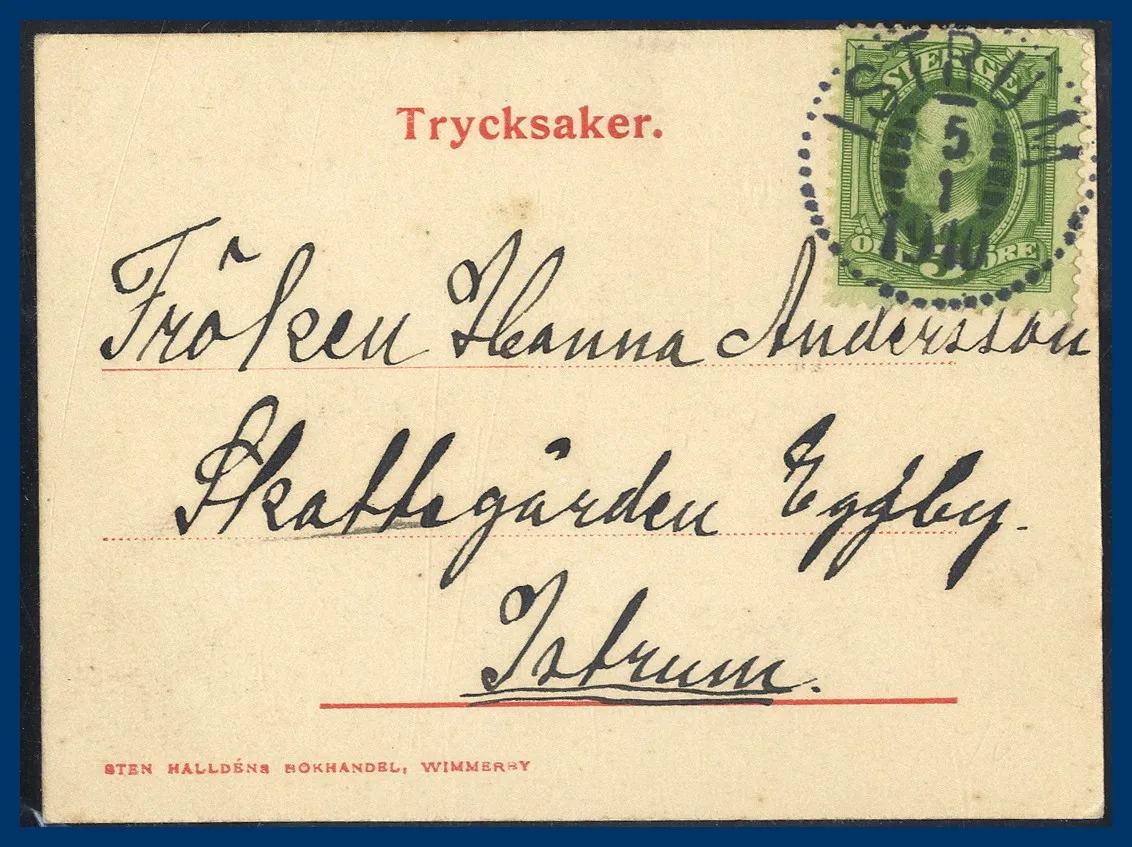 Trycksaker.
SVERIGE
ÖRE 5 ÖRE
ISTRUM
5
1
1910
Fröken Hanna Andersson
Skattegården Eggby.
Istrum.
STEN HALLDÉNS BOKHANDEL, WIMMERBY